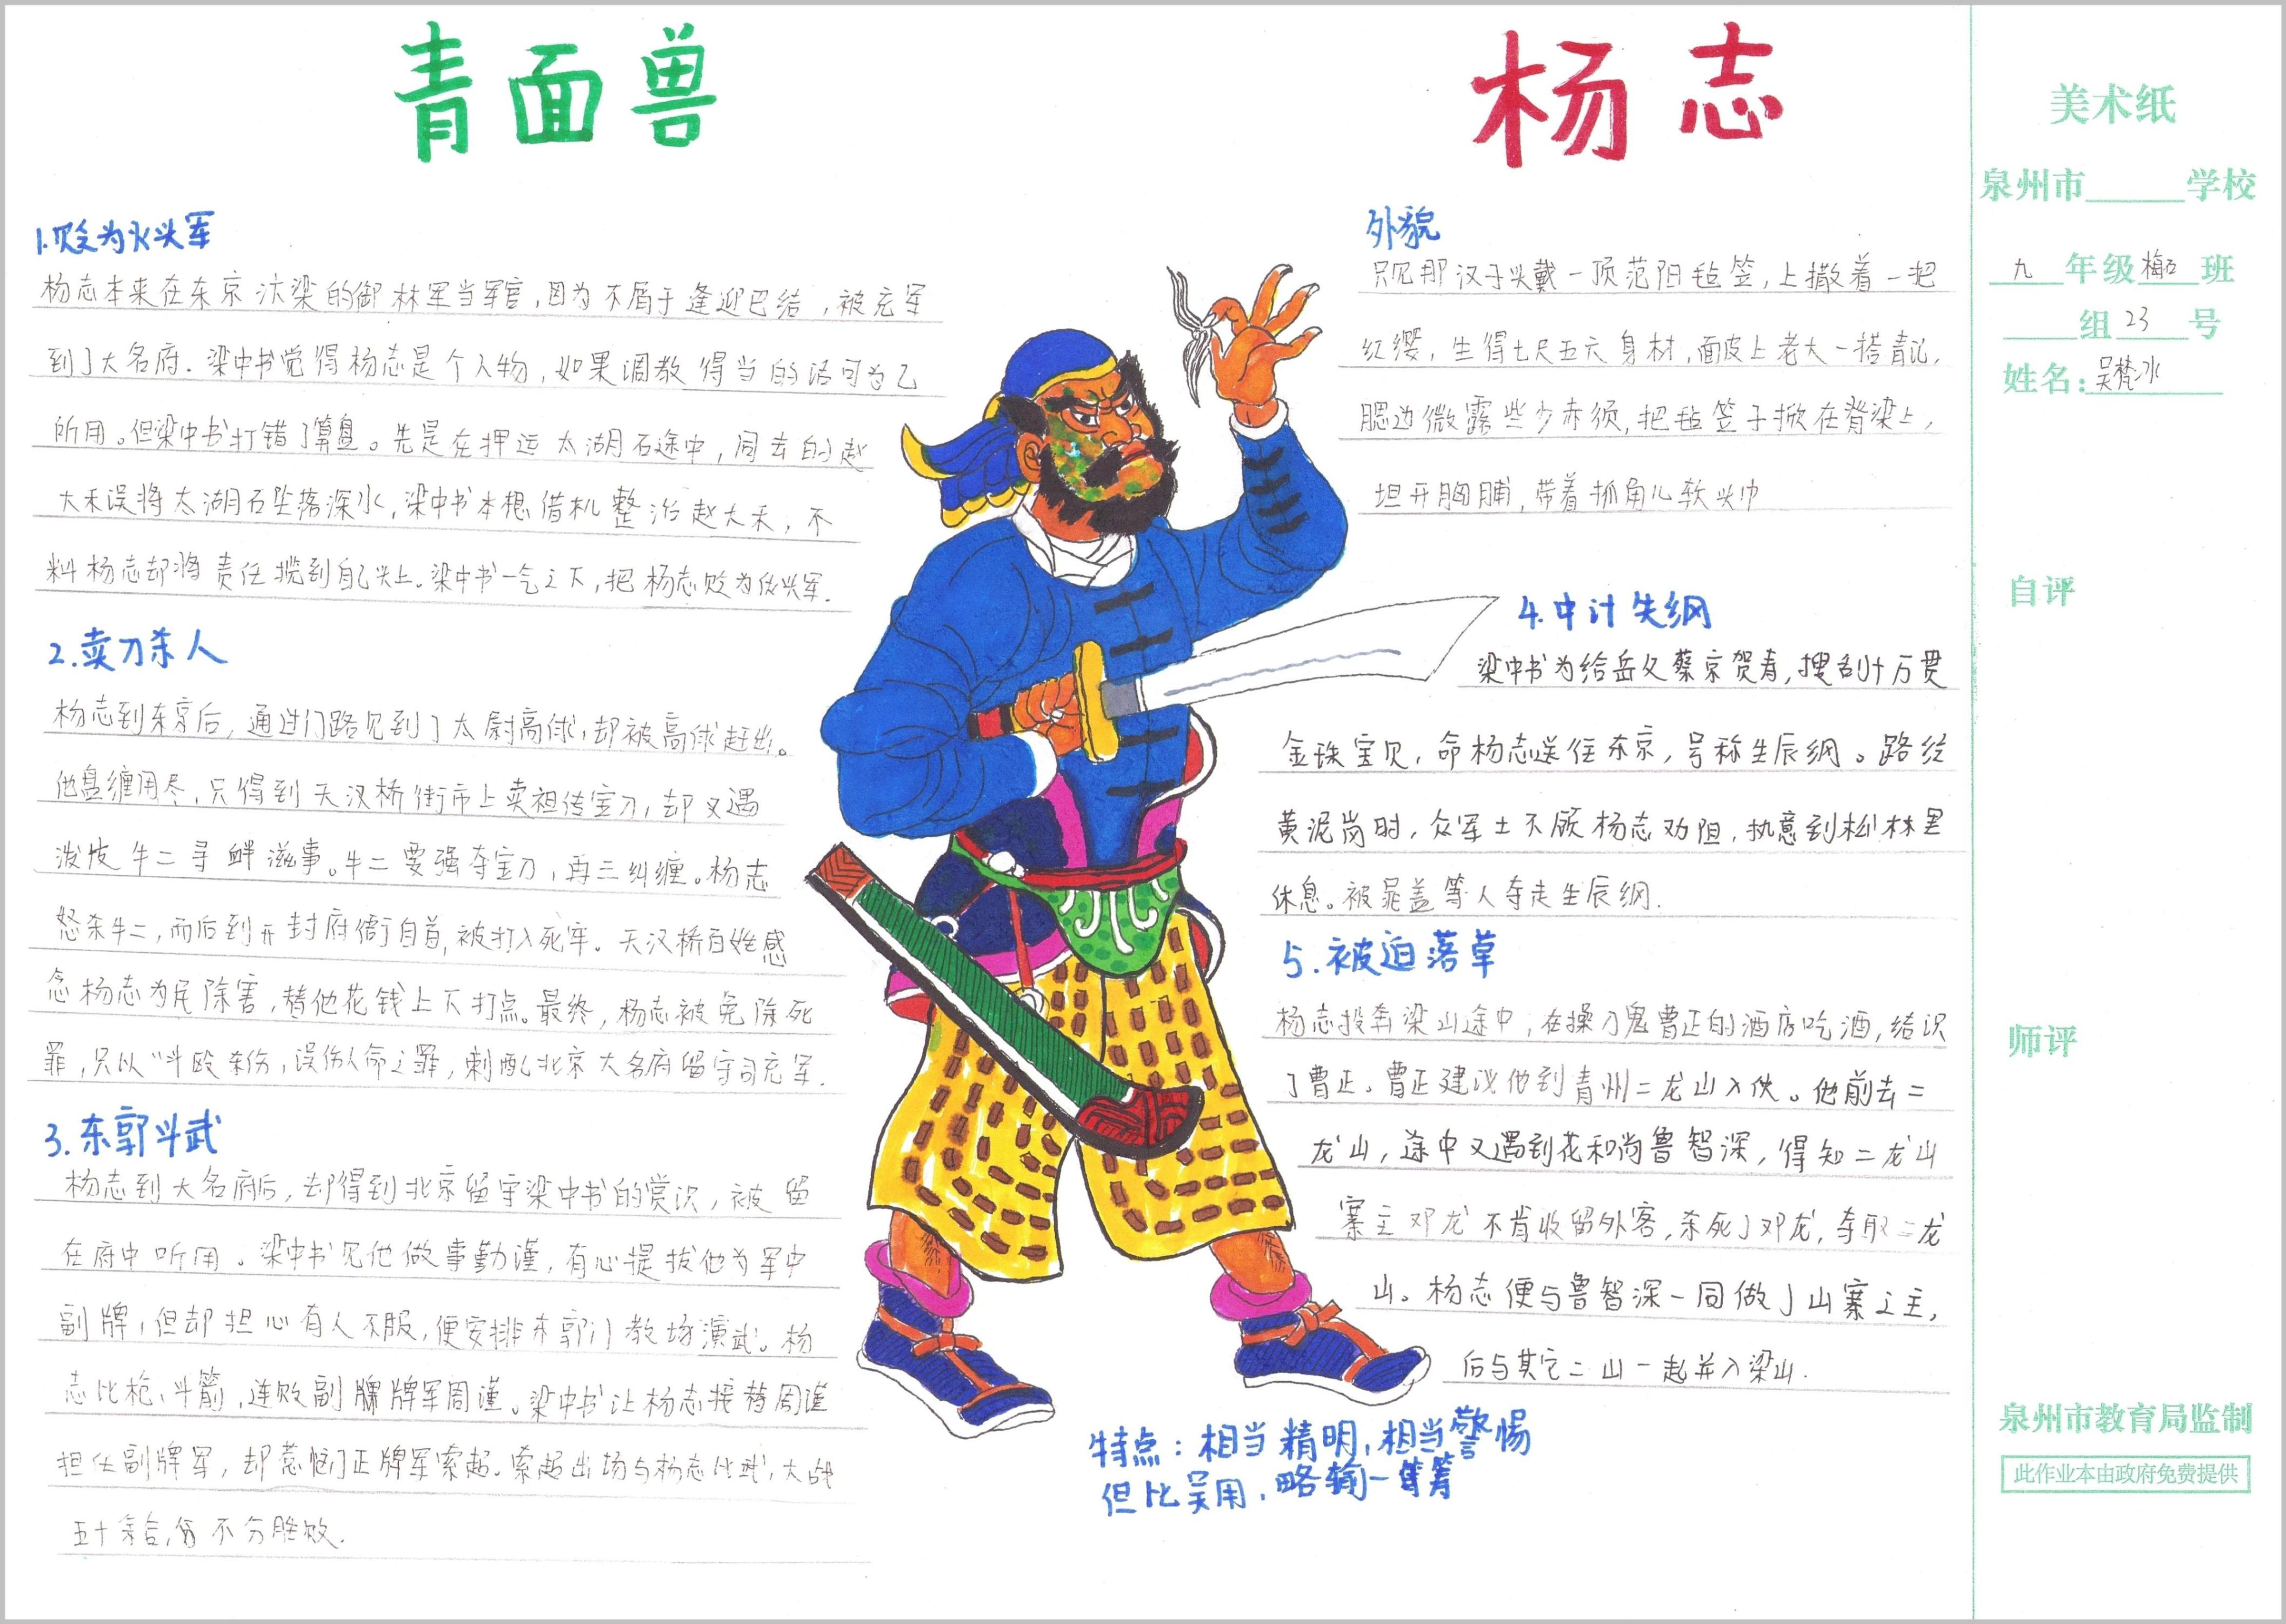 青面兽 杨志
1.贬为火头军
杨志本来在东京汴梁的御林军当军官,因为不屑于逢迎巴结,被充军
到了大名府.梁中书觉得杨志是个人物,如果调教得当的话可为己
所用。但梁中书打错了算盘。先是在押运太湖石途中,同去的赵
大禾误将太湖石坠落深水,梁中书本想借机整治赵大禾,不
料杨志却将责任揽到自己头上。梁中书一气之下,把杨志贬为伙头军.
2.卖刀杀人
杨志到东京后,通过门路见到了太尉高俅,却被高俅赶出。
他盘缠用尽,只得到天汉桥街市上卖祖传宝刀,却又遇
泼皮牛二寻衅滋事。牛二要强夺宝刀,再三纠缠。杨志
怒杀牛二,而后到开封府衙自首,被打入死牢。天汉桥百姓感
念杨志为民除害,替他花钱上下打点。最终,杨志被免除死
罪,只以“斗殴杀伤,误伤人命之罪,刺配北京大名府留守司充军.
3.东郭斗武
杨志到大名府后,却得到北京留守梁中书的赏识,被留
在府中听用。梁中书见他做事勤谨,有心提拔他为军中
副牌,但却担心有人不服,便安排东郭门教场演武。杨
志比枪、斗箭,连败副牌牌军周谨。梁中书让杨志接替周谨
担任副牌军,却惹恼了正牌军索超.索超出场与杨志比武,大战
五十余合,不分胜败.
外貌
只见那汉子头戴一顶范阳毡笠,上撒着一把
红缨,生得七尺五六身材,面皮上老大一搭青记,
腮边微露些少赤须,把毡笠子掀在脊梁上,
坦开胸脯,带着抓角儿软头巾
4.中计失纲
梁中书为给岳父蔡京贺寿,搜刮十万贯
金珠宝贝,命杨志送往东京,号称生辰纲。路经
黄泥岗时,众军士不顾杨志劝阻,执意到松林里
休息。被晁盖等人夺走生辰纲.
5.被迫落草
杨志投奔梁山途中,在操刀鬼曹正的酒店吃酒,结识
了曹正。曹正建议他到青州二龙山入伙。他前去二
龙山,途中又遇到花和尚鲁智深,得知二龙山
寨主邓龙不肯收留外客,杀死了邓龙,夺取二龙
山。杨志便与鲁智深一同做了山寨之主,
后与其它二山一起并入梁山.
特点:相当精明,相当警惕
但比吴用,略输一筹
美术纸
泉州市______学校
九年级梅石班
____组23号
姓名:吴梵冰
自评
师评
泉州市教育局监制
此作业本由政府免费提供